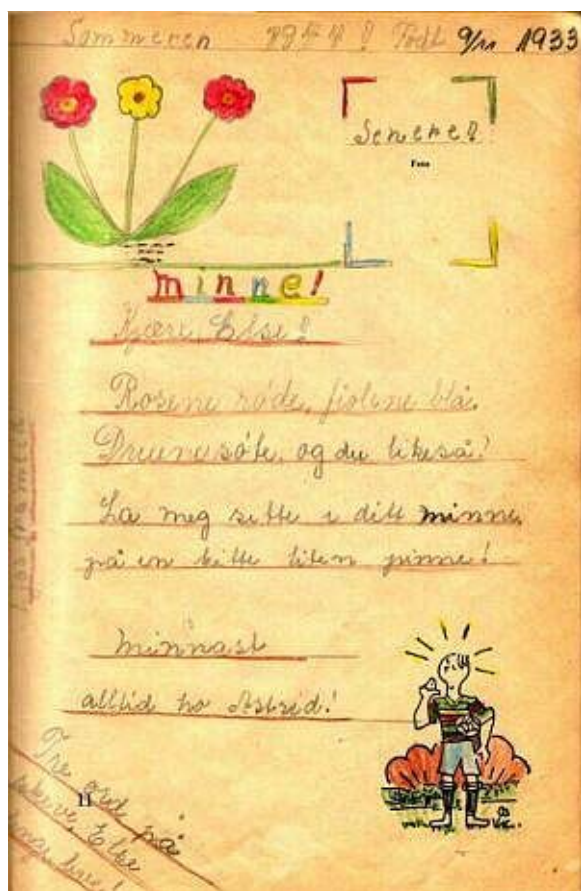 Sommeren 1944! Født 9/11 1933
Senere!
Foto
minne!
Kjære Else!
Rosene røde, fiolene blå.
Druene søte, og du likeså!
La meg sitte i ditt minne,
på en bitte liten pinne!
Minnast
alltid ho Astrid!
Tre ord på
skeive, Else
11